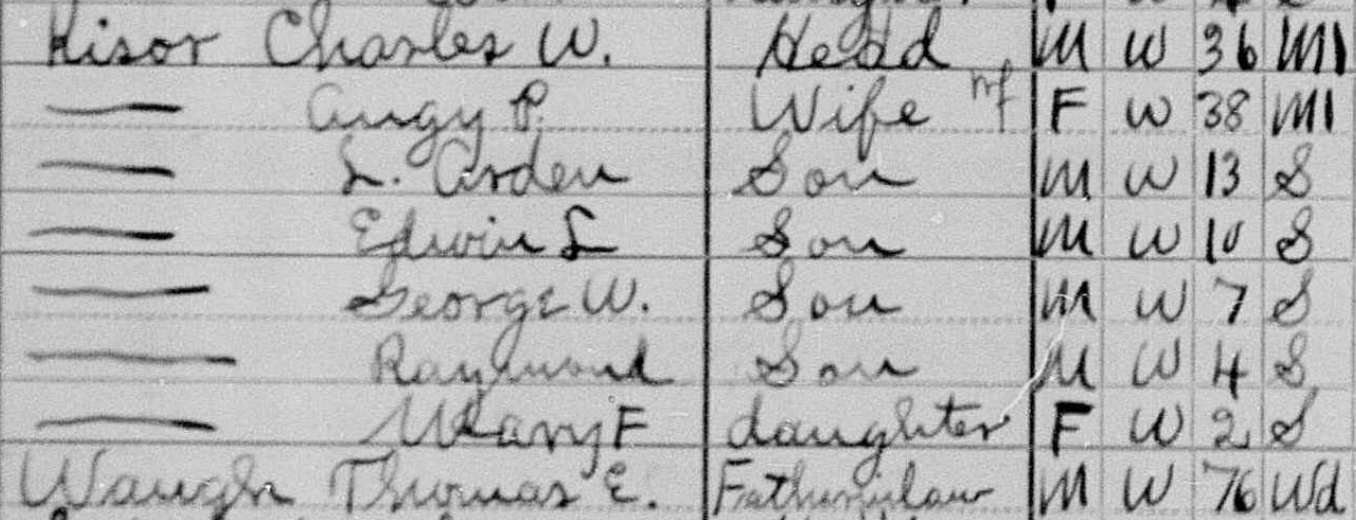 Kisor Charles W. Head M W 36 M1
— Angy P. Wife F W 38 M1
— L. Arden Son M W 13 S
— Edwin L Son M W 10 S
— George W. Son M W 7 S
— Raymond Son M W 4 S
— Mary F daughter F W 2 S
Waugh Thomas E. Fatherinlaw M W 76 Wd